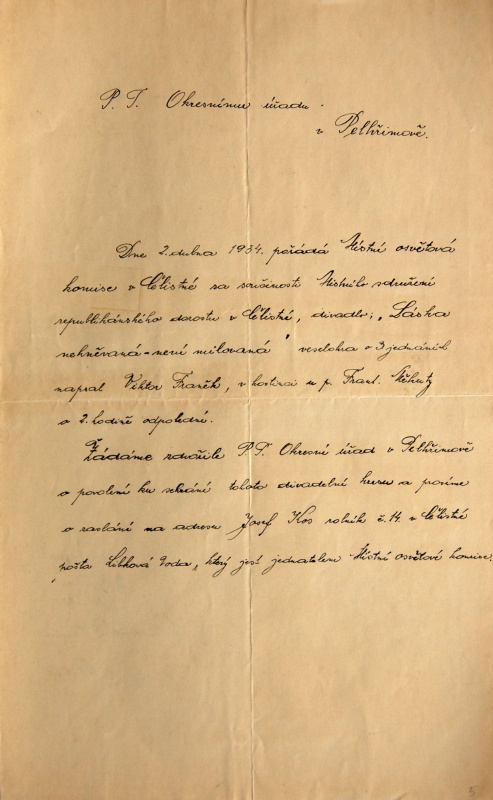 P. T. Okresnímu úřadu
v Pelhřimově.
Dne 2. dubna 1934. pořádá Místní osvětová
komise v Čelistné za součinosti Místního sdružení
republikánského dorostu v Čelistné, divadlo; „Láska
nehněvaná - není milovaná" veselohra o 3 jednáních
napsal Viktor Franěk, v hostinci u p. Frant.
o 2. hodině odpolední.
Žádáme zdvořile P. T. Okresní úřad v Pelhřimově
o povolení ku sehrání tohoto divadelní kusu a prosíme
o zaslání na adresu Josef Kos rolník č. 14. v Čelistné
pošta Libková Voda, který jest jednatelem Místní osvětové komise.
5